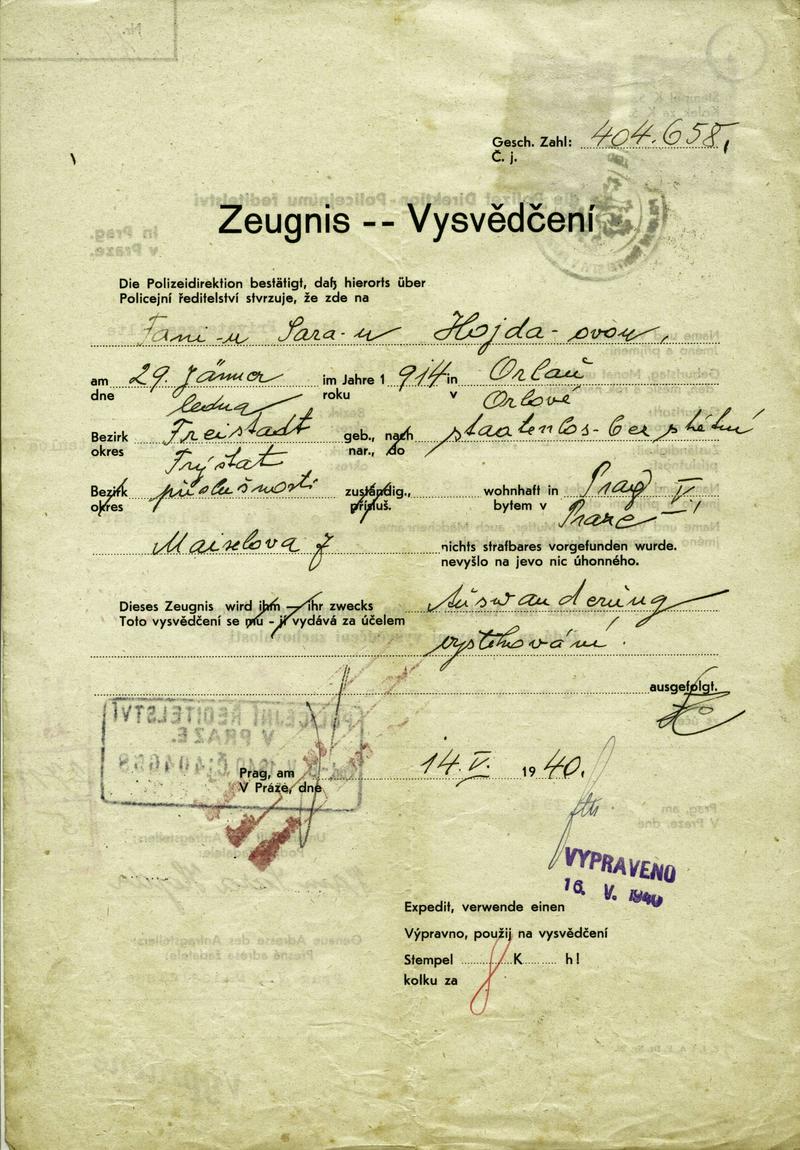 Gesch. Zahl: 404.658,
Č. j.
Zeugnis -- Vysvědčení
Die Polizeidirektion bestätigt, daß hierorts über
Policejní ředitelství stvrzuje, že zde na
Fani-u Sara-u Hojda-ovou,
am 29. Jänner im Jahre 1 914 in Orlau
dne ledna roku v Orlové
Bezirk Freistadt geb., nach staatenlos-bez státní
okres Fryštat nar., do
Bezirk příslušnosti zuständig., wohnhaft in Prag V.,
okres přísluš. bytem v Praze
Maiselova 7 nichts strafbares vorgefunden wurde.
nevyšlo na jevo nic úhonného.
Dieses Zeugnis wird ihm — ihr zwecks Auswanderung
Toto vysvědčení se mu - jí vydává za účelem
vystěhování.
ausgefolgt.
POLICEJNÍ ŘEDITELSTVÍ
V PRAZE.
V. 1940 Č. 404658
Prag, am 14. V. 1940.
V Praze, dne
VYPRAVENO
16. V. 1940
Expedit, verwende einen
Výpravno, použij na vysvědčení
Stempel K h!
kolku za 8